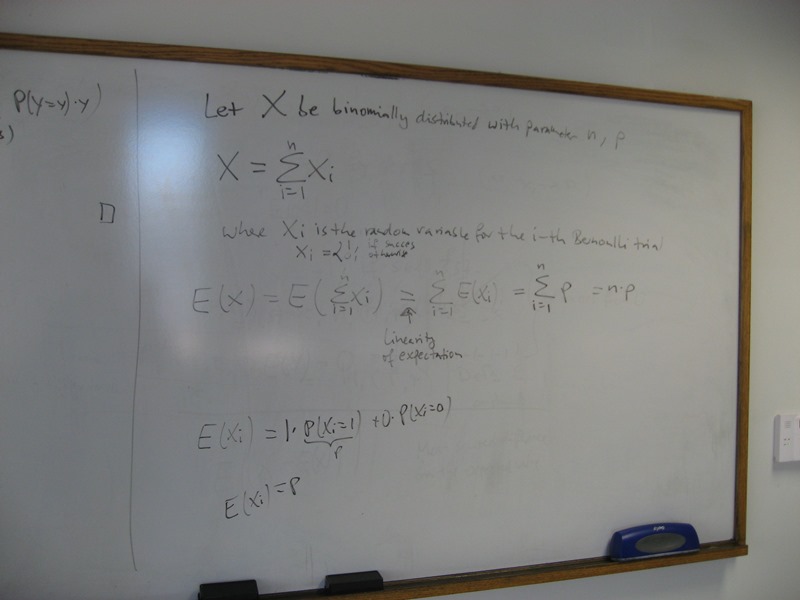 P(Y=y)·y)
s)
□
Let X be binomially distributed with parameter n, p
X = ∑_{i=1}^{n} Xi
where Xi is the random variable for the i-th Bernoulli trial
Xi = { 1, if succes
otherwise
E(X) = E(∑_{i=1}^{n} Xi) = ∑_{i=1}^{n} E(Xi) = ∑_{i=1}^{n} p = n·p
↑
linearity
of expectation
E(Xi) = 1·P(Xi=1) + 0·P(Xi=0)
p
E(Xi) = p